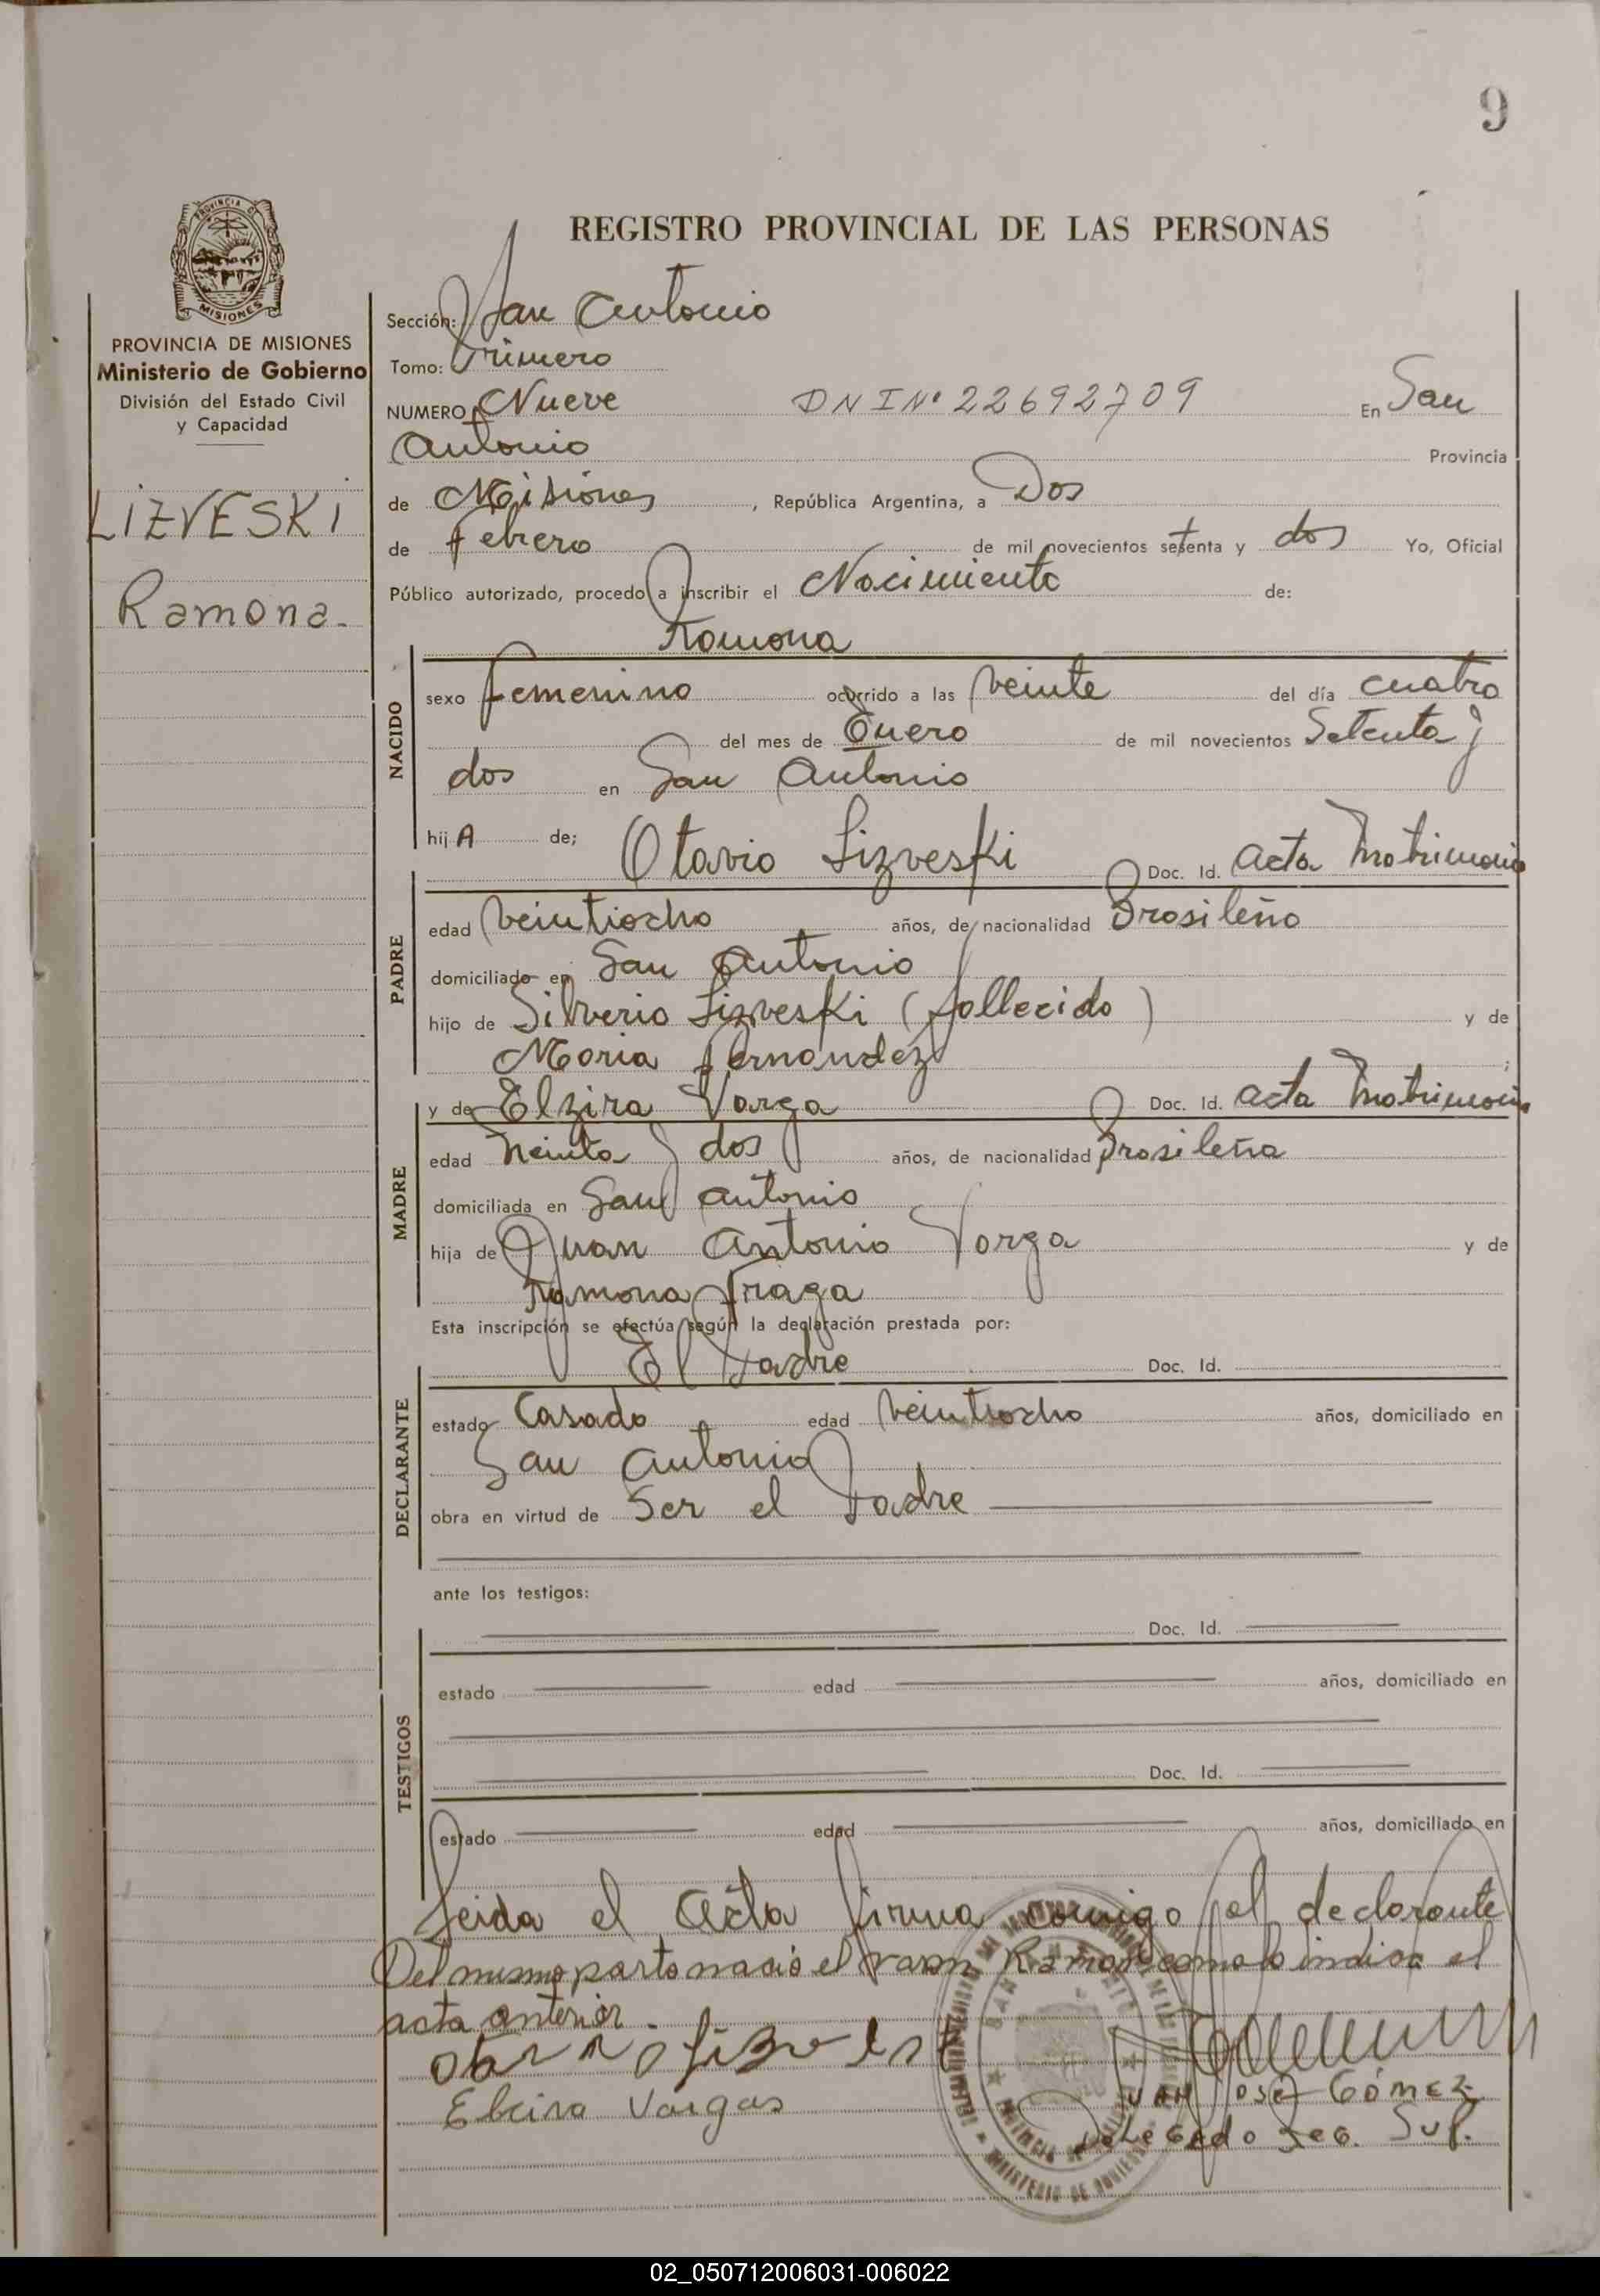 9
PROVINCIA DE
MISIONES
REGISTRO PROVINCIAL DE LAS PERSONAS
PROVINCIA DE MISIONES
Ministerio de Gobierno
División del Estado Civil
y Capacidad
LIZVESKI
Ramona.
Sección: San Antonio
Tomo: Primero
NUMERO Nueve DNI Nº 22692709 En San
Antonio Provincia
de Misiones, República Argentina, a Dos
de febrero de mil novecientos setenta y dos Yo, Oficial
Público autorizado, procedo a inscribir el Nacimiento de:
Ramona
NACIDO
sexo femenino ocurrido a las veinte del día cuatro
del mes de Enero de mil novecientos Setenta y
dos en San Antonio
hij A de; Otavio Lizveski Doc. Id. Acta Matrimonio
PADRE
edad veintiocho años, de nacionalidad Brasileño
domiciliado en San Antonio
hijo de Silverio Lizveski (fallecido) y de
Maria Fernandez;
MADRE
y de Elzira Varga Doc. Id. Acta Matrimonio
edad treinta y dos años, de nacionalidad Brasileña
domiciliada en San Antonio
hija de Juan Antonio Varga y de
Ramona Fraga
Esta inscripción se efectúa según la declaración prestada por:
El Padre Doc. Id.
DECLARANTE
estado Casado edad veintiocho años, domiciliado en
San Antonio
obra en virtud de Ser el Padre
ante los testigos:
TESTIGOS
Doc. Id.
estado edad años, domiciliado en
Doc. Id.
estado edad años, domiciliado en
Leida el Acta firma conmigo el declarante
Del mismo parto nació el varon Ramon como lo indica el
acta anterior.
Elzira Vargas
JUAN JOSE GÓMEZ
Delegado Reg. Sup.
02_050712006031-006022